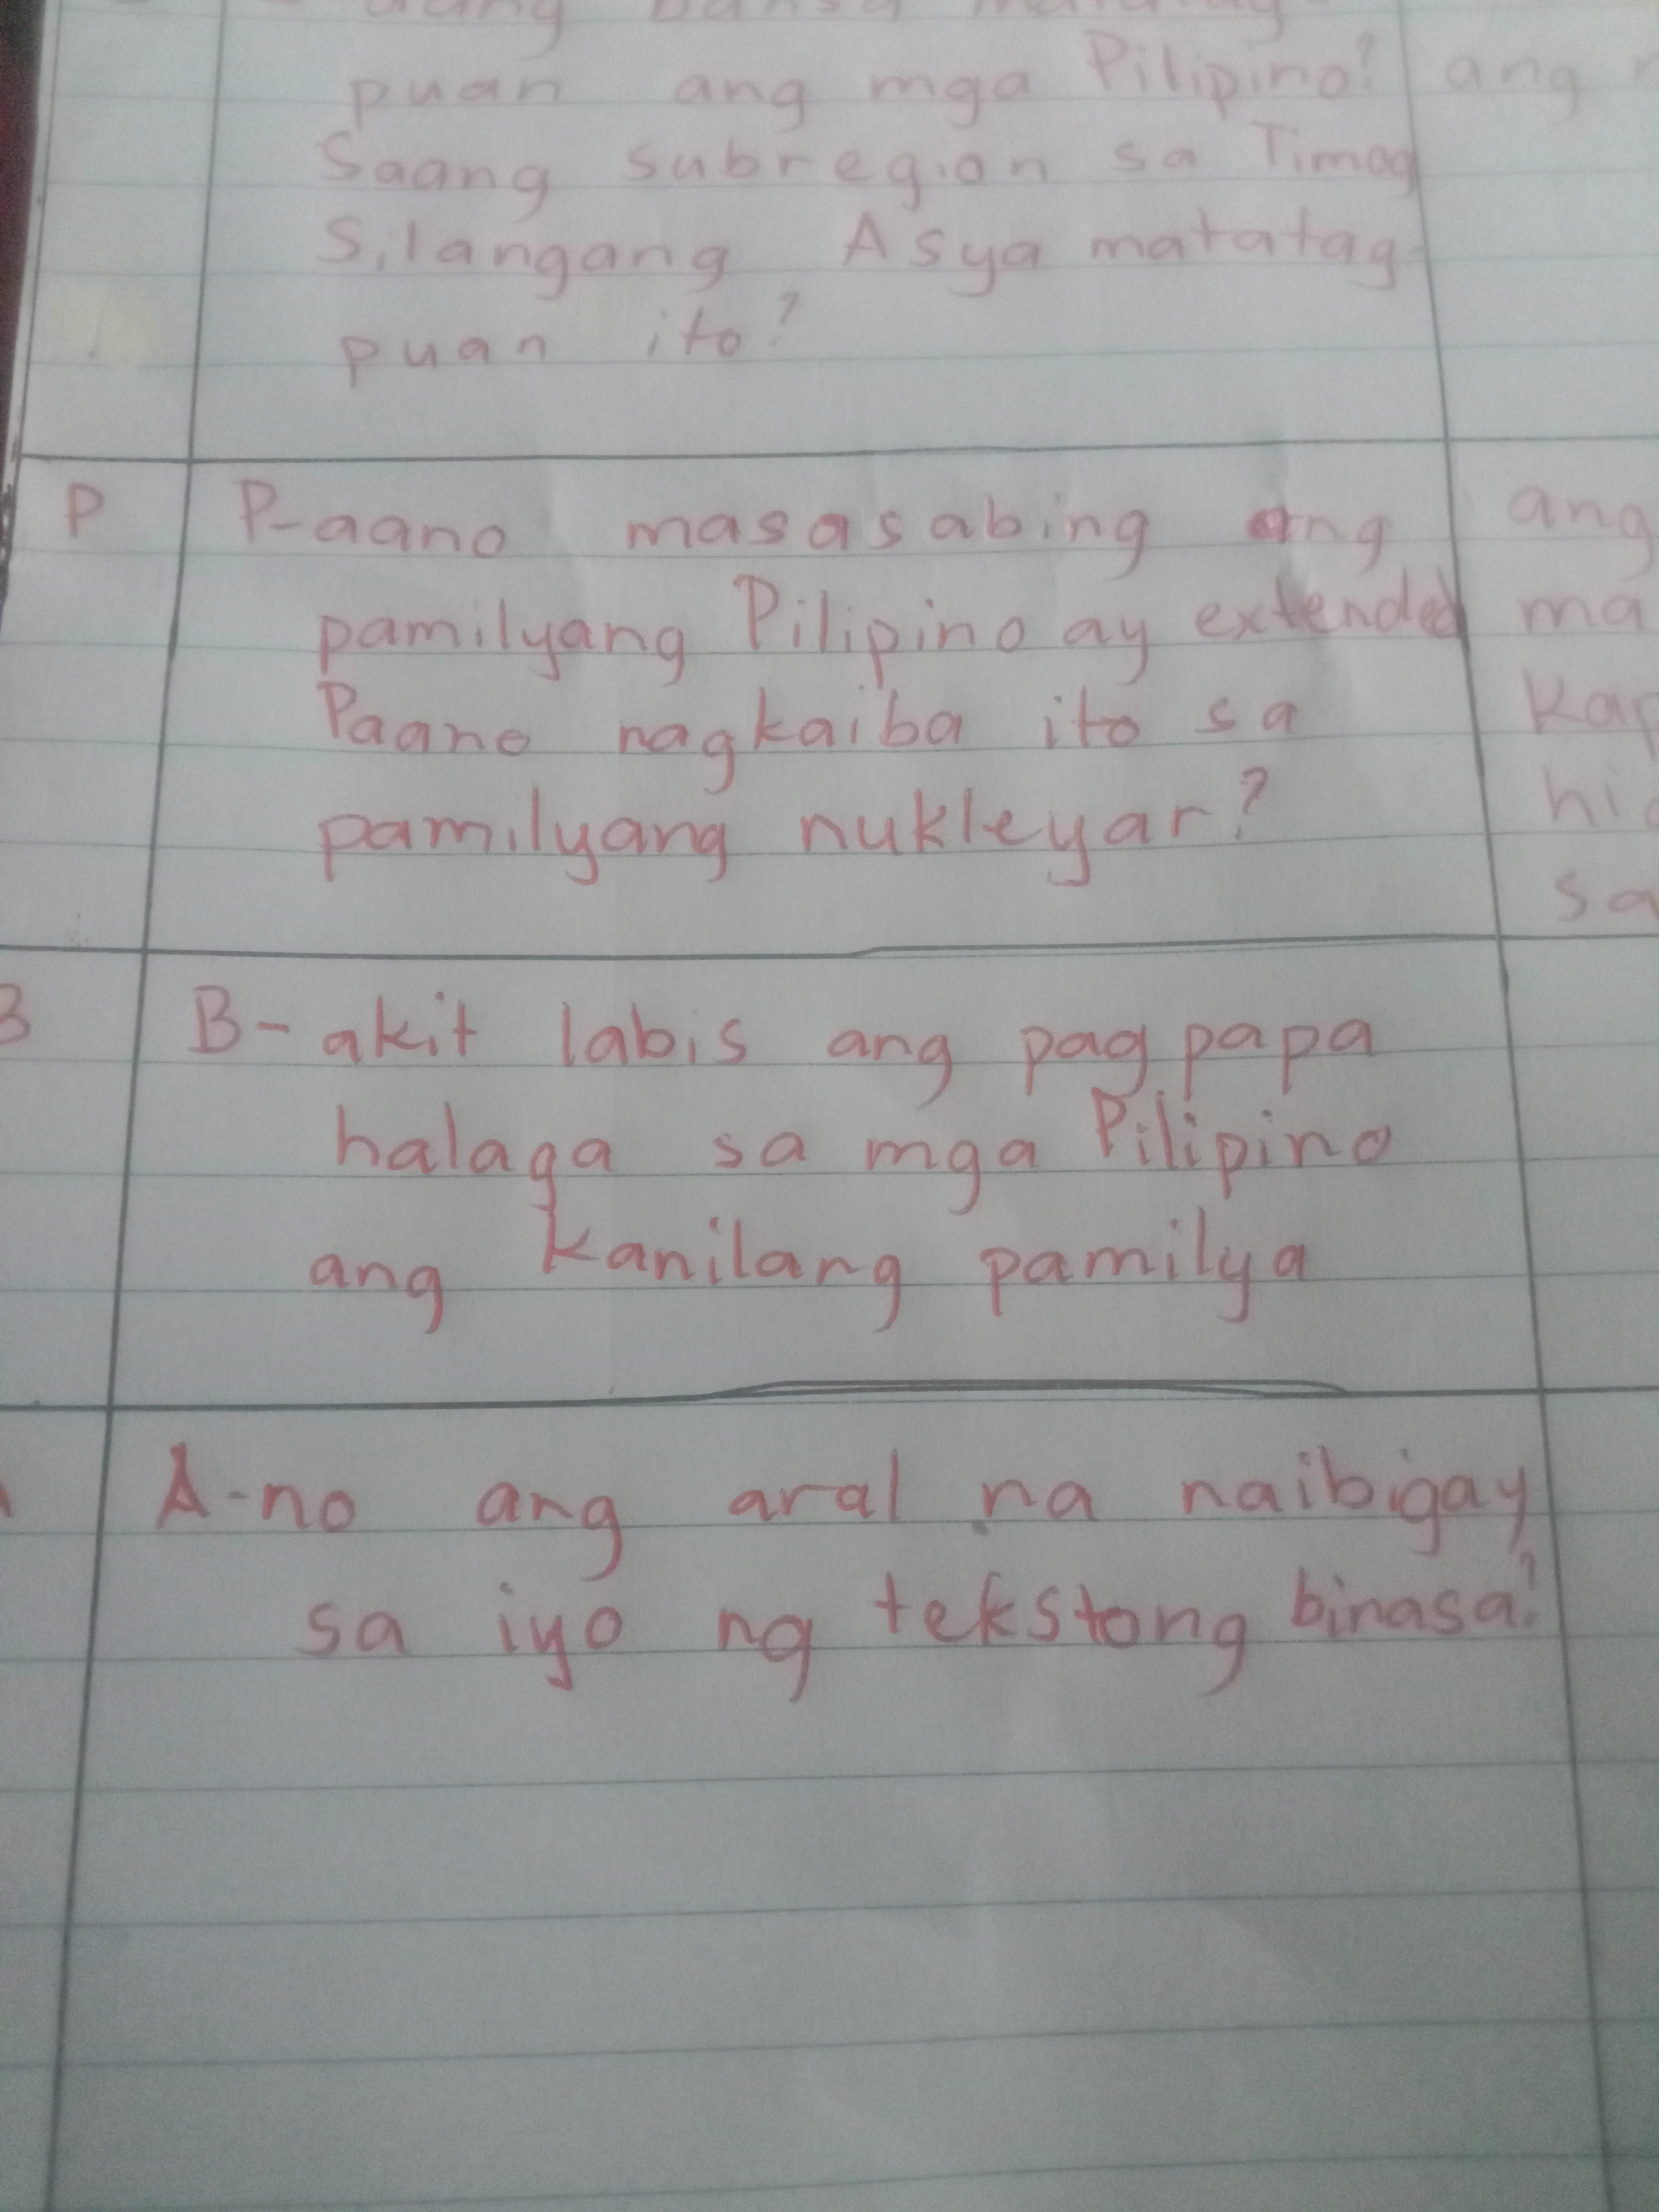 puan ang mga Pilipino? ang
Saang subregion sa Timog
Silangang Asya matatag-
puan ito?
P P-aano masasabing ang ang
pamilyang Pilipino ay extended ma
Paano nagkaiba ito sa Kap
pamilyang nukleyar? hi
sa
B B-akit labis ang pagpapa
halaga sa mga Pilipino
ang kanilang pamilya
A-no ang aral na naibigay
sa iyo ng tekstong binasa?